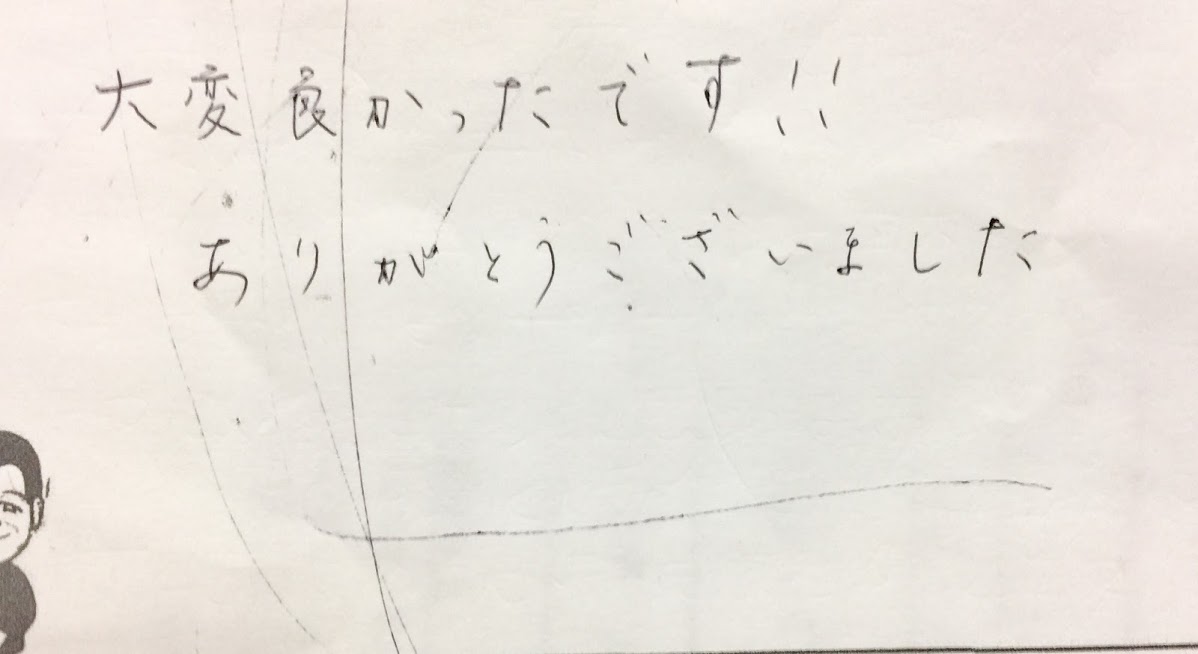 大変良かったです!!
ありがとうございました